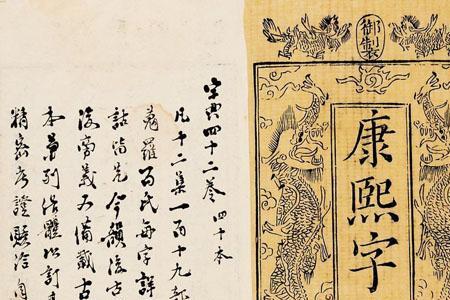 御製
康熙字
字典四十二卷 四十本
凡十二集一百十九部
蒐羅百氏每字詳
詁皆先今韻後古
後旁義又備載古
本列俗體以訂
精密考證賅洽自